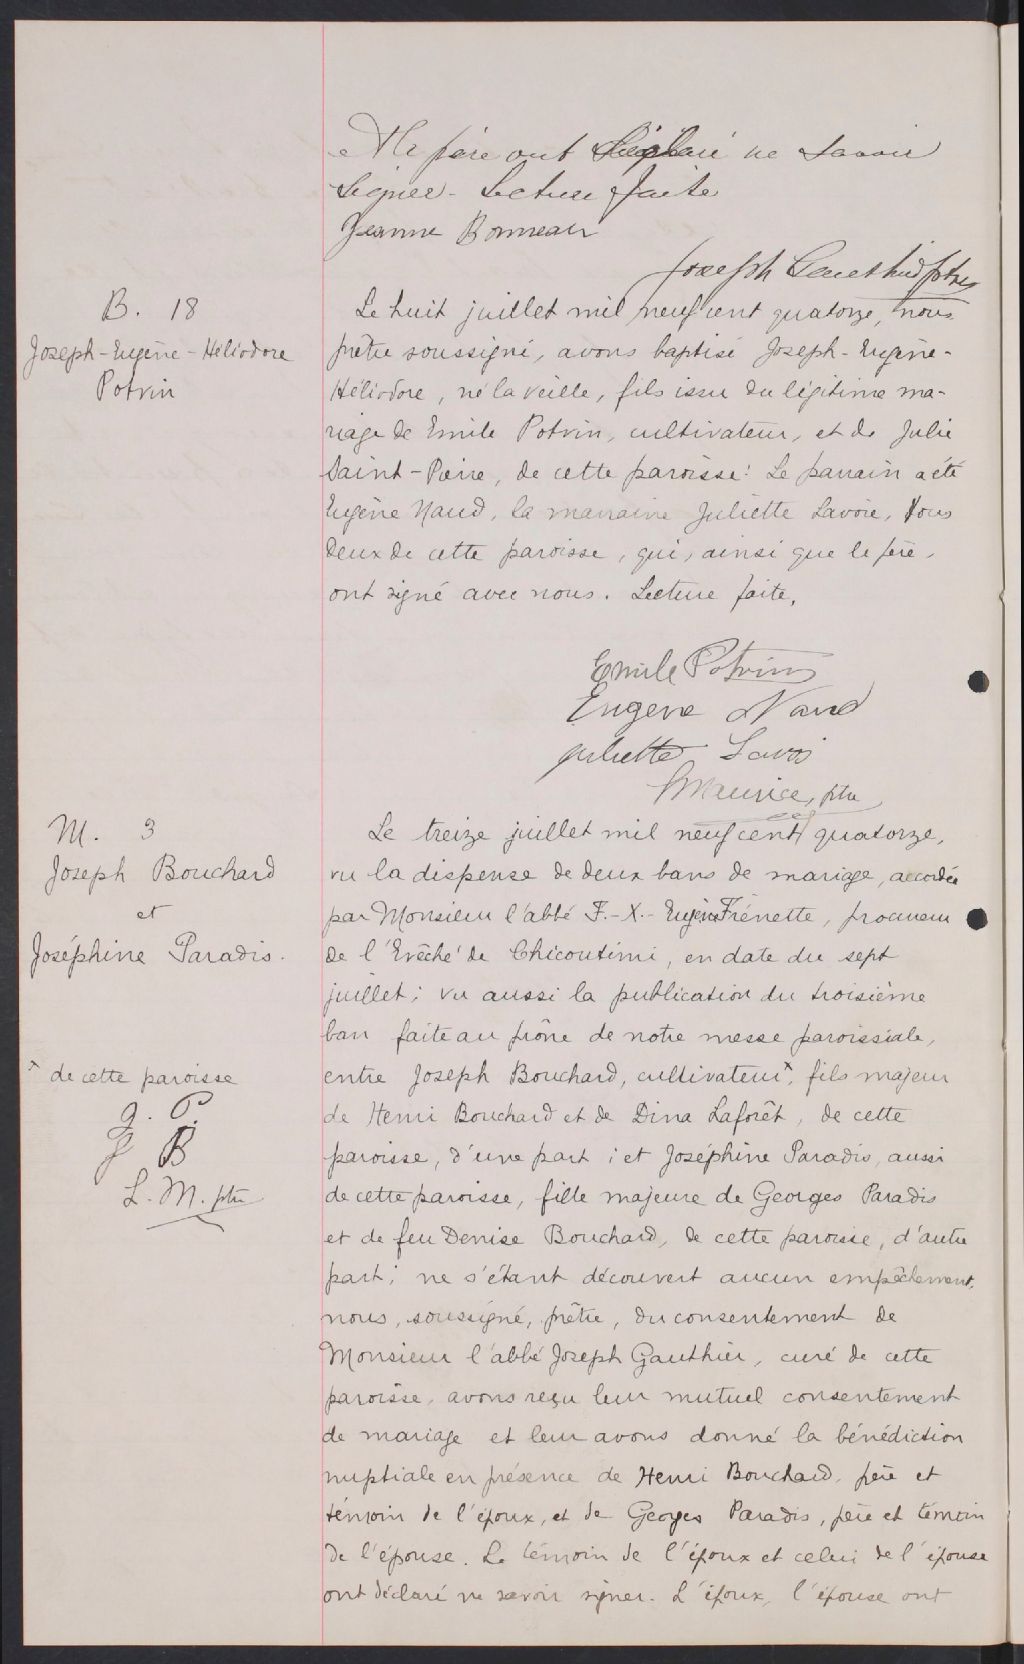 et le père ont déclaré ne savoir
signer - Lecture faite
Jeanne Bonneau
Joseph Gauthier ptre
B. 18
Joseph-Eugène-Héliodore
Potvin
Le huit juillet mil neuf cent quatorze, nous
prêtre soussigné, avons baptisé Joseph-Eugène-
Héliodore, né la veille, fils issu du légitime ma-
riage de Emile Potvin, cultivateur, et de Julie
Saint-Pierre, de cette paroisse. Le parrain a été
Eugène Naud, la marraine Juliette Lavoie, tous
deux de cette paroisse, qui, ainsi que le père,
ont signé avec nous. Lecture faite.
Emile Potvin
Eugène Naud
Juliette Lavoi
LMaurice, ptre
M. 3
Joseph Bouchard
et
Joséphine Paradis.
Le treize juillet mil neuf cent quatorze,
vu la dispense de deux bans de mariage, accordée
par Monsieur l'abbé F.-X.-Eugène Frénette, procureur
de l'Evêché de Chicoutimi, en date du sept
juillet; vu aussi la publication du troisième
ban faite au prône de notre messe paroissiale,
entre Joseph Bouchard, cultivateur x, fils majeur
x de cette paroisse
J. P.
J B
L. M. ptre
de Henri Bouchard et de Dina Laforêt, de cette
paroisse, d'une part; et Joséphine Paradis, aussi
de cette paroisse, fille majeure de Georges Paradis
et de feu Denise Bouchard, de cette paroisse, d'autre
part; ne s'étant découvert aucun empêchement,
nous, soussigné, prêtre, du consentement de
Monsieur l'abbé Joseph Gauthier, curé de cette
paroisse, avons reçu leur mutuel consentement
de mariage et leur avons donné la bénédiction
nuptiale en présence de Henri Bouchard, père et
témoin de l'époux, et de Georges Paradis, père et témoin
de l'épouse. Le témoin de l'époux et celui de l'épouse
ont déclaré ne savoir signer. L'époux, l'épouse ont